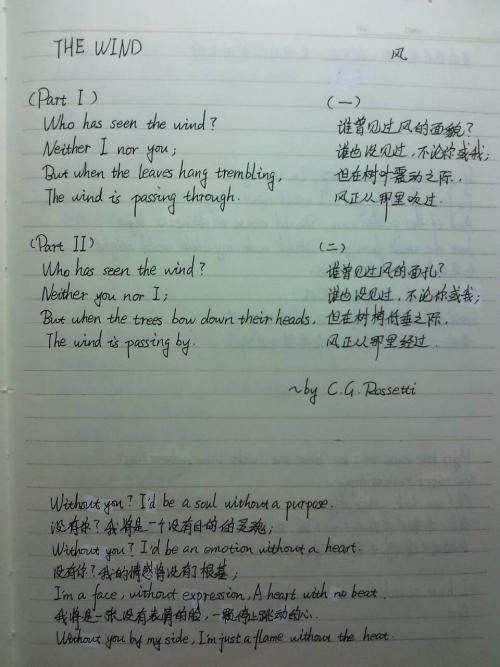 THE WIND 风
(Part I) (一)
Who has seen the wind? 谁曾见过风的面貌?
Neither I nor you; 谁也没见过,不论你或我;
But when the leaves hang trembling, 但在树叶震动之际,
The wind is passing through. 风正从那里吹过.
(Part II) (二)
Who has seen the wind? 谁曾见过风的面孔?
Neither you nor I; 谁也没见过,不论你或我;
But when the trees bow down their heads, 但在树梢低垂之际,
The wind is passing by. 风正从那里经过.
~by C.G.Rossetti
Without you? I'd be a soul without a purpose.
没有你?我将是一个没有目的的灵魂;
Without you? I'd be an emotion without a heart.
没有你?我的情感将没有了根基;
I'm a face, without expression, A heart with no beat.
我将是一张没有表情的脸,一颗停止跳动的心.
Without you by my side, I'm just a flame without the heat.